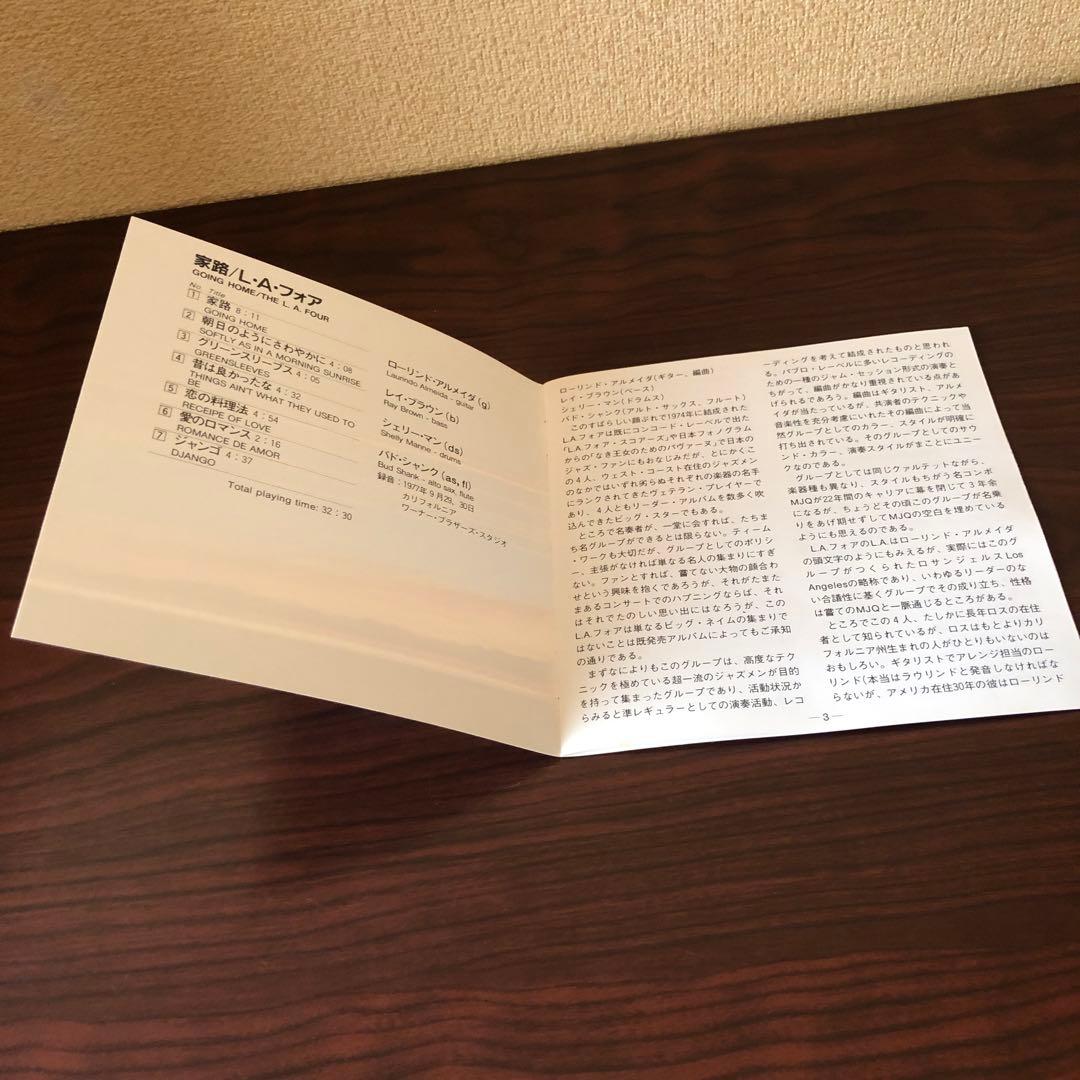 家路/L・A・フォア
GOING HOME/THE L. A. FOUR
No. Title
1 家路 8：11
GOING HOME
2 朝日のようにさわやかに 4：08
SOFTLY AS IN A MORNING SUNRISE
3 グリーンスリーブス 4：05
GREENSLEEVES
4 昔は良かったな 4：32
THINGS AIN'T WHAT THEY USED TO
BE
5 恋の料理法 4：54
RECEIPE OF LOVE
6 愛のロマンス 2：16
ROMANCE DE AMOR
7 ジャンゴ 4：37
DJANGO
Total playing time: 32：30
ローリンド・アルメイダ (g)
Laurindo Almeida - guitar
レイ・ブラウン (b)
Ray Brown - bass
シェリー・マン (ds)
Shelly Manne - drums
バド・シャンク (as, fl)
Bud Shank - alto sax, flute
録音：1977年9月29、30日
カリフォルニア
ワーナー・ブラザーズ・スタジオ
ローリンド・アルメイダ(ギター、編曲)
レイ・ブラウン(ベース)
シェリー・マン(ドラムス)
バド・シャンク(アルト・サックス、フルート)
このすばらしい顔ぶれで1974年に結成された
L.A.フォアは既にコンコード・レーベルで出た
「L.A.フォア・スコアーズ」や日本フォノグラム
からの「なき王女のためのパヴァーヌ」で日本の
ジャズ・ファンにもおなじみだが、とにかくこ
の4人、ウェスト・コースト在住のジャズメン
のなかではいずれ劣らぬそれぞれの楽器の名手
にランクされてきたヴェテラン・プレイヤーで
あり、4人ともリーダー・アルバムを数多く吹
込んできたビッグ・スターでもある。
ところで名奏者が、一堂に会すれば、たちま
ち名グループができるとは限らない。ティーム
・ワークも大切だが、グループとしてのポリシ
ー、主張がなければ単なる名人の集まりにすぎ
ない。ファンとすれば、嘗てない大物の顔合わ
せという興味を抱くであろうが、それがたまた
まあるコンサートでのハプニングならば、それ
はそれでたのしい思い出にはなろうが、この
L.A.フォアは単なるビッグ・ネイムの集まりで
はないことは既発売アルバムによってもご承知
の通りである。
まずなによりもこのグループは、高度なテク
ニックを極めている超一流のジャズメンが目的
を持って集まったグループであり、活動状況か
らみると準レギュラーとしての演奏活動、レコ
ーディングを考えて結成されたものと思われ
る。パブロ・レーベルに多いレコーディングの
ための一種のジャム・セッション形式の演奏と
ちがって、編曲がかなり重視されている点があ
げられるであろう。編曲はギタリスト、アルメ
イダが当たっているが、共演者のテクニックや
音楽性を充分考慮にいれたその編曲によって当
然グループとしてのカラー、スタイルが明確に
打ち出されている。そのグループとしてのサウ
ンド・カラー、演奏スタイルがまことにユニー
クなのである。
グループとしては同じクァルテットながら、
楽器種も異なり、スタイルもちがう名コンボ
MJQが22年間のキャリアに幕を閉じて3年余
になるが、ちょうどその頃このグループが名乗
りをあげ期せずしてMJQの空白を埋めている
ようにも思えるのである。
L.A.フォアのL.A.はローリンド・アルメイダ
の頭文字のようにもみえるが、実際にはこのグ
ループがつくられたロサンジェルスLos
Angelesの略称であり、いわゆるリーダーのな
い合議性に基くグループでその成り立ち、性格
は嘗てのMJQと一脈通じるところがある。
ところでこの4人、たしかに長年ロスの在住
者として知られているが、ロスはもとよりカリ
フォルニア州生まれの人がひとりもいないのは
おもしろい。ギタリストでアレンジ担当のロー
リンド(本当はラウリンドと発音しなければな
らないが、アメリカ在住30年の彼はローリンド
—3—